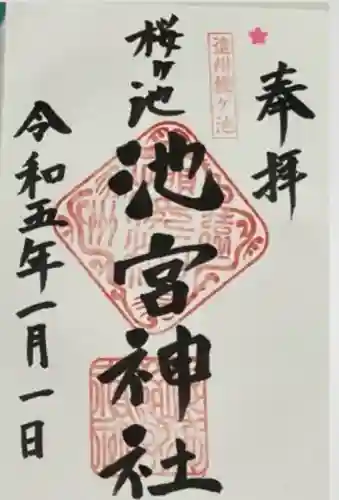 奉拝
遠州桜ヶ池
桜ヶ池
池宮神社
令和五年一月一日